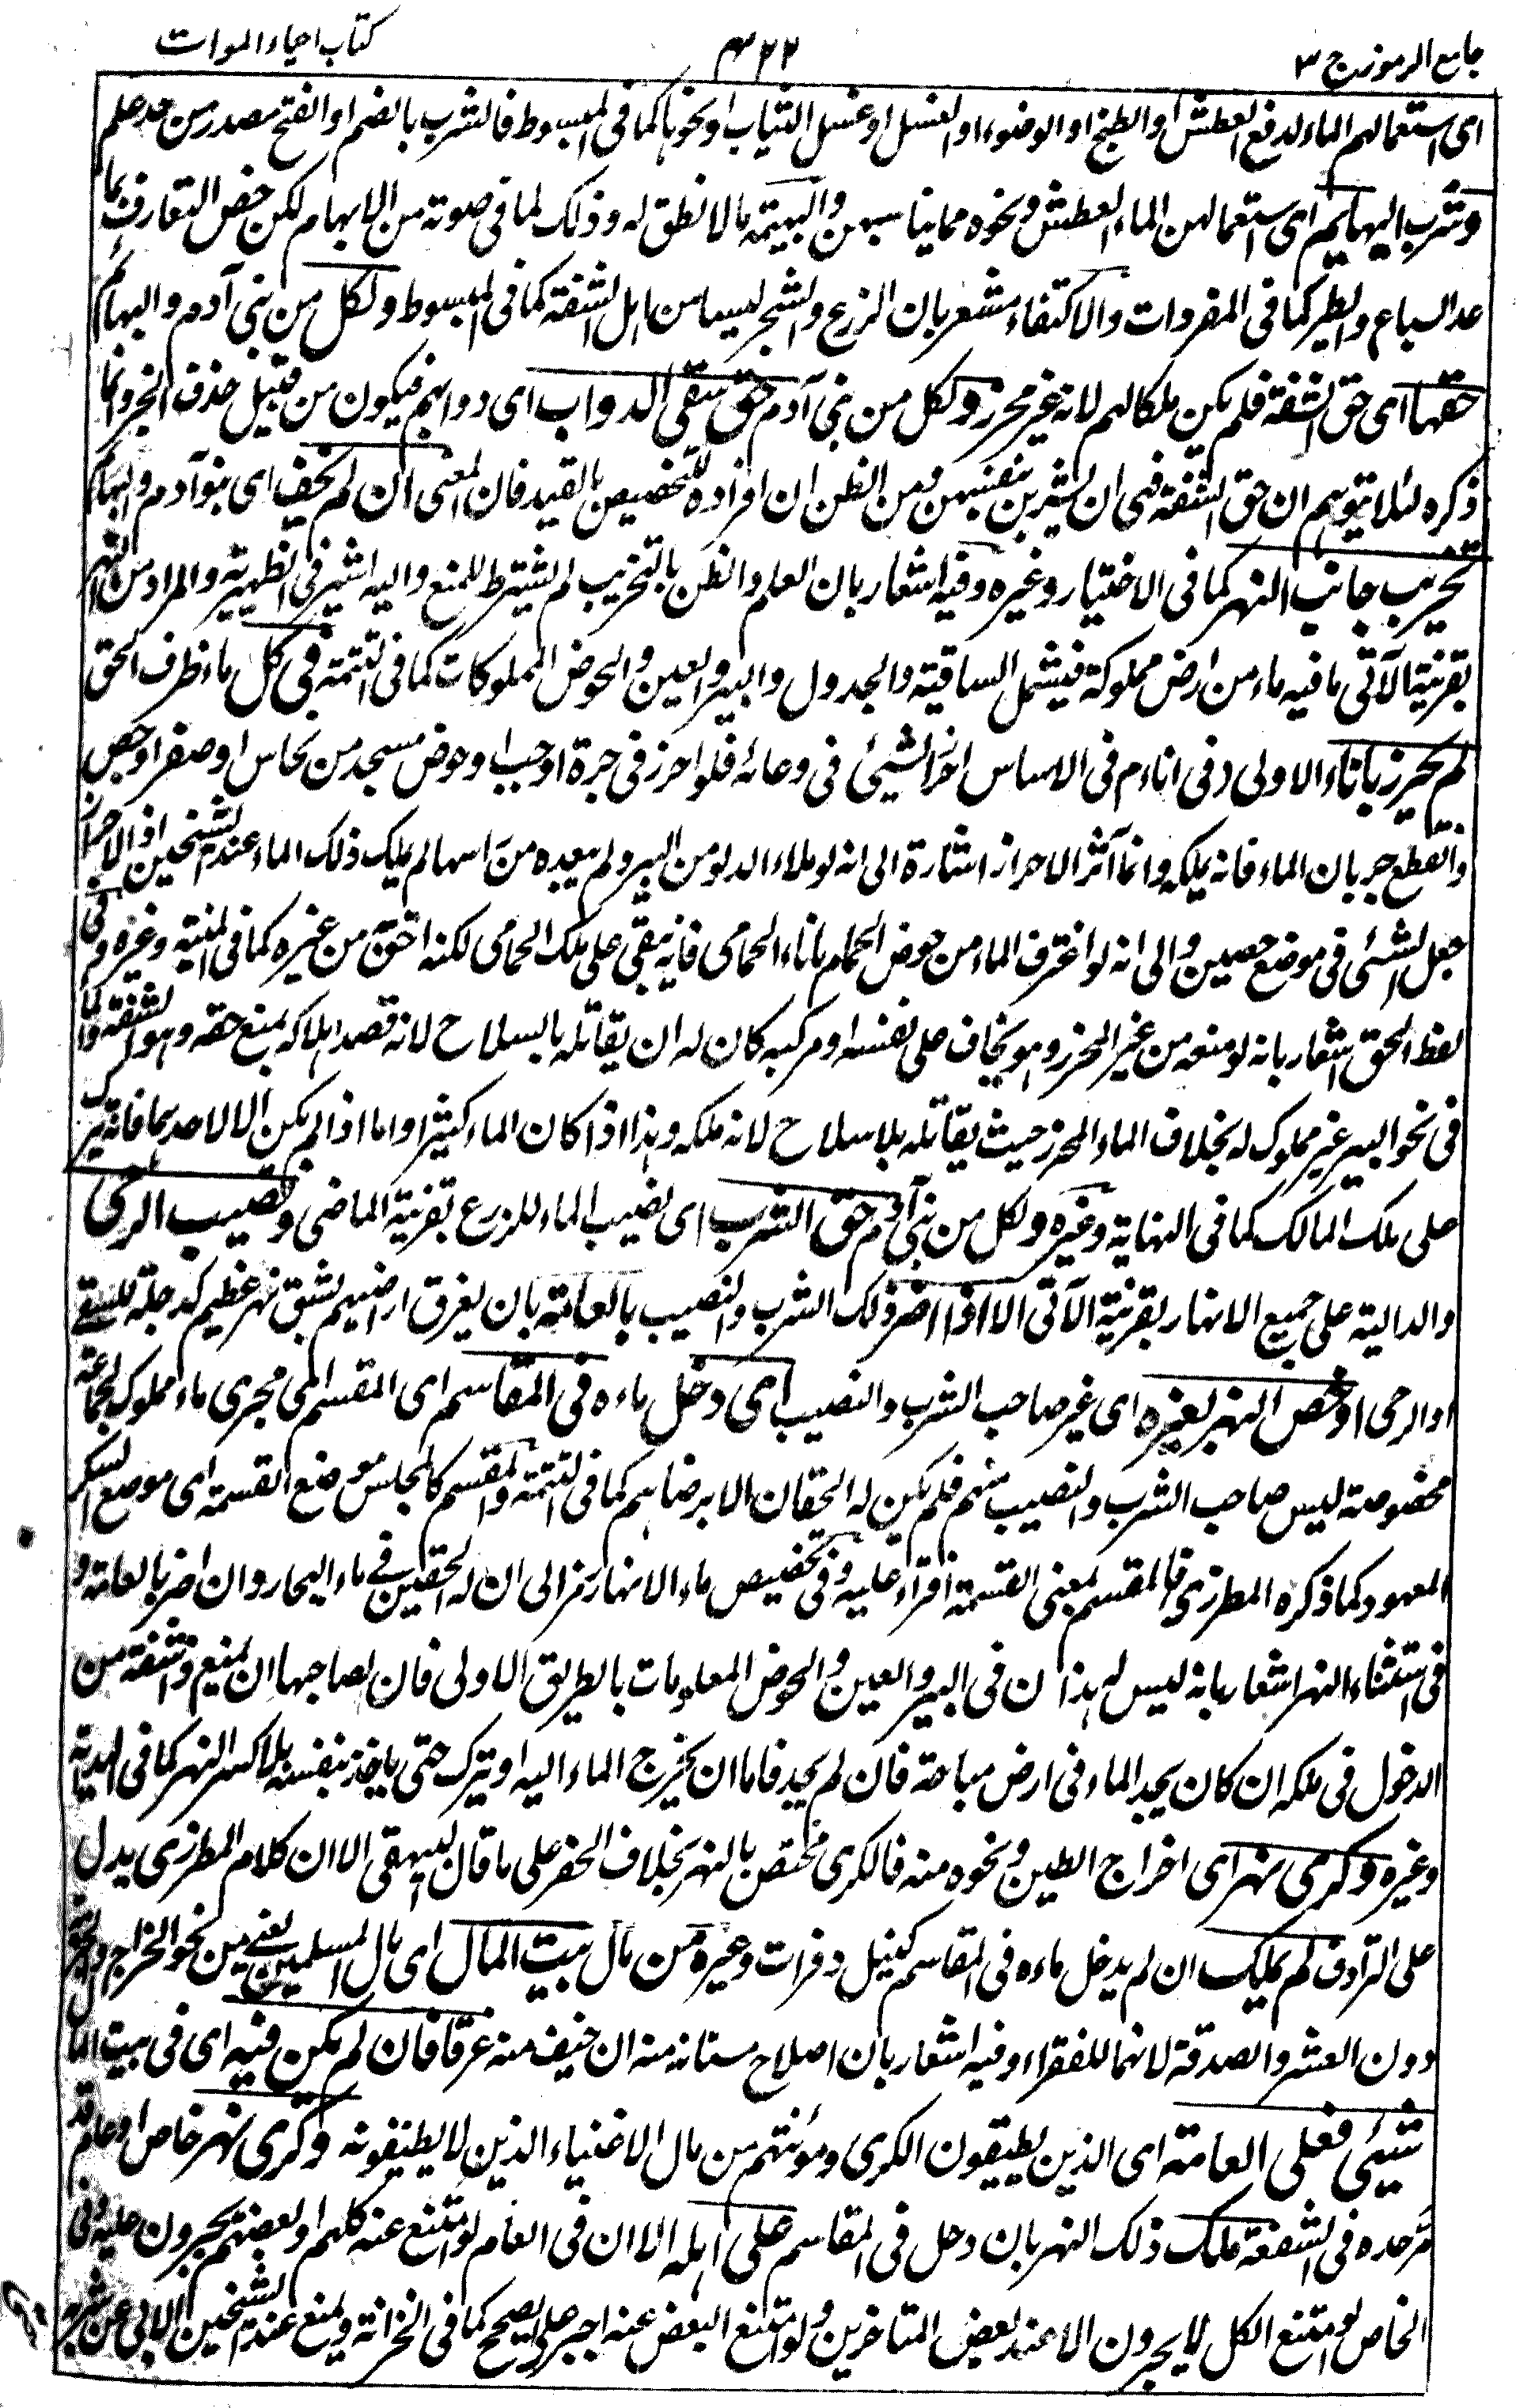 جامع الرموز ج ٣
٣٢٢
كتاب احياء الموات
اى استعمالهم الماء لدفع العطش او الطبخ او الوضوء او الغسل او غسل الثياب او نحوها كما فى المبسوط فالشرب بالضم او الفتح مصدر من حد علم
وشرب البهايم اى استعمالهن الماء للعطش ونحوه مما يناسبهن والبهيمة ما لا نطق له وذلك لما فى صوته من الابهام لكن خص التعارف بما
عد السباع والطير كما فى المفردات والاكتفاء مشعر بان الزرع والشجر ليسا من اهل الشفة كما فى المبسوط ولكل من بنى آدم والبهائم
حقها اى حق الشفة فلم يكن ملكا لهم لانه غير محرز ولكل من بنى آدم حق سقى الدواب اى دوابهم فيكون من قبيل حذف الخبر وانما
ذكره لئلا يتوهم ان حق الشفة فى ان يشربن بنفسهن ومن الظن ان افراده للتخصيص بالقيد فان المعنى ان لم يخف اى بنو آدم والبهائم
تخريب جانب النهر كما فى الاختيار وغيره وفيه اشعار بان العلم والظن بالتخريب لم يشترط للمنع واليه اشير فى الظهيرية والمراد من النهر
بقرينة الآتى ما فيه ماء من ارض مملوكة فيشمل الساقية والجدول والبير والعين والحوض المملوكات كما فى التتمة فى كل ماء ظرف الحق
لم يحرز باناء الاولى فى اناء م فى الاساس احرز الشيئ فى وعائه فلو احرز فى جرة او جب او حوض مسجد من نحاس او صفر او جص
وانقطع جريان الماء فانه يملكه وانما آثر الاحراز اشارة الى انه لو ملاء الدلو من البير ولم يبعده من راسها لم يملك ذلك الماء عند الشيخين اذ الاحراز
جعل الشئ فى موضع حصين والى انه لو اغترف الماء من حوض الحمام باناء الحمامى فانه يبقى على ملك الحمامى لكنه احق من غيره كما فى المنية وغيره وفى
لفظ الحق اشعار بانه لو منعه من غير المحرز وهو يخاف على نفسه او مركبه كان له ان يقاتله بالسلاح لانه قصد اهلاكه بمنع حقه وهو الشفة والماء
فى نحو البير غير مملوك له بخلاف الماء المحرز حيث يقاتله بلا سلاح لانه ملكه وهذا اذا كان الماء كثيرا واما اذا لم يكن الا لاحدهما فانه يترك
على ملك المالك كما فى النهاية وغيره ولكل من بنى آدم حق الشرب اى نصيب الماء للزرع بقرينة الماضى ونصيب الرحى
والدالية على جميع الانهار بقرينة الآتى الا اذا اضر ذلك الشرب والنصيب بالعامة بان يغرق اراضيهم لشق نهر عظيم كدجلة للسقى
او الرحى او خص النهر بغيره اى غير صاحب الشرب والنصيب اى دخل ماءه فى المقاسم اى المقسم اى مجرى ماء مملوك لجماعة
مخصوصة ليس صاحب الشرب والنصيب منهم فلم يكن له الحقان الا برضاهم كما فى التتمة والمقسم كالمجلس موضع القسمة اى موضع السكر
المعهود كما ذكره المطرزى فالمقسم بمعنى القسمة افتراء عليه وفى تخصيص ماء الانهار رمز الى ان له الحقين فى ماء البحار وان اضر بالعامة و
فى استثناء النهر اشعار بانه ليس له هذان فى البير والعين والحوض المعلومات بالطريق الاولى فان لصاحبها ان يمنع ذا شفة من
الدخول فى ملكه ان كان يجد الماء فى ارض مباحة فان لم يجد فاما ان يخرج الماء اليه او يترك حتى ياخذ بنفسه بلا كسر النهر كما فى الهداية
وغيره وكرى نهر اى اخراج الطين ونحوه منه فالكرى مختص بالنهر بخلاف الحفر على ما قال البيهقى الا ان كلام المطرزى يدل
على الترادف لم يملك ان لم يدخل ماءه فى المقاسم كنيل وفرات وغيره من مال بيت المال اى مال المسلمين يعنى من نحو الخراج والجزية
دون العشر والصدقة لانهما للفقراء وفيه اشعار بان اصلاح مسناته منه ان خيف منه غرقا فان لم يكن فيه اى فى بيت المال
شيئى فعلى العامة اى الذين يطيقون الكرى ومؤنتهم من مال الاغنياء الذين لا يطيقونه وكرى نهر خاص او عام قد
مر حده فى الشفعة ملك ذلك النهر بان دخل فى المقاسم على اهله الا ان فى العام لو امتنع عنه كلهم او بعضهم يجبرون عليه وفى
الخاص لو امتنع الكل لا يجبرون الا عند بعض المتاخرين ولو امتنع البعض عنه اجبر على الصحيح كما فى الخزانة ويمنع عند الشيخين الآبى عن شربه